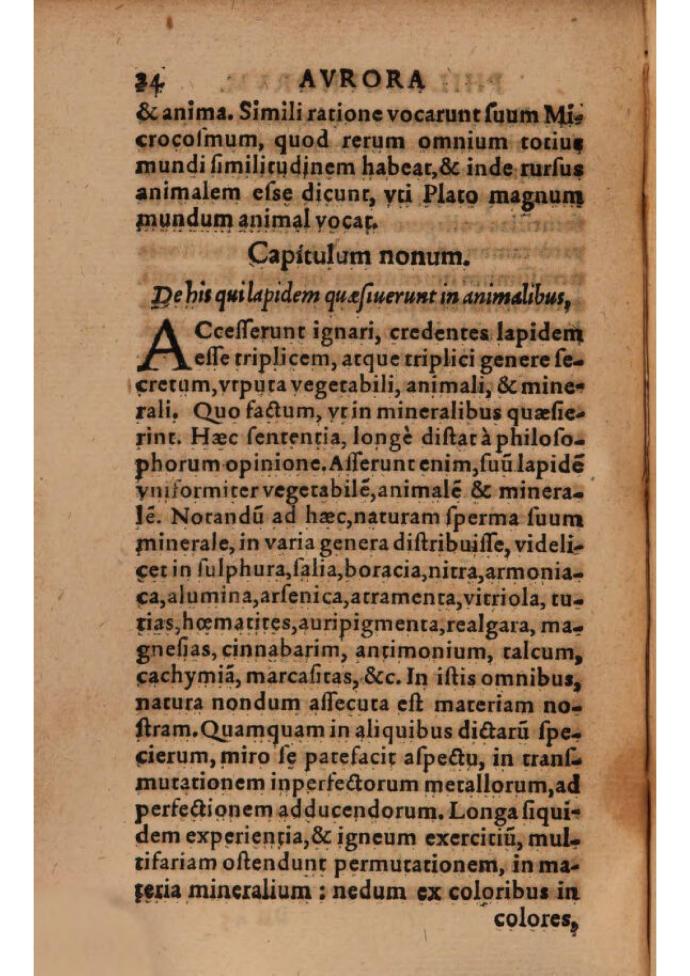 24 AVRORA
& anima. Simili ratione vocarunt ſuum Mi-
crocoſmum, quod rerum omnium totius
mundi ſimilitudinem habeat, & inde rurſus
animalem eſse dicunt, vti Plato magnum
mundum animal vocat.
Capitulum nonum.
De his qui lapidem quæſiuerunt in animalibus,
ACceſſerunt ignari, credentes lapidem
eſſe triplicem, atque triplici genere ſe-
cretum, vtputa vegetabili, animali, & mine-
rali. Quo factum, vt in mineralibus quæſie-
rint. Hæc ſententia, longè diſtat à philoſo-
phorum opinione. Aſſerunt enim, ſuū lapidē
vniformiter vegetabilē, animalē & minera-
lē. Notandū ad hæc, naturam ſperma ſuum
minerale, in varia genera diſtribuiſſe, videli-
cet in ſulphura, ſalia, boracia, nitra, armonia-
ca, alumina, arſenica, atramenta, vitriola, tu-
tias, hœmatites, auripigmenta, realgara, ma-
gneſias, cinnabarim, antimonium, talcum,
cachymiā, marcaſitas, &c. In iſtis omnibus,
natura nondum aſſecuta eſt materiam no-
ſtram. Quamquam in aliquibus dictarū ſpe-
cierum, miro ſe patefacit aſpectu, in tranſ-
mutationem inperfectorum metallorum, ad
perfectionem adducendorum. Longa ſiqui-
dem experientia, & igneum exercitiū, mul-
tifariam oſtendunt permutationem, in ma-
teria mineralium : nedum ex coloribus in
colores,